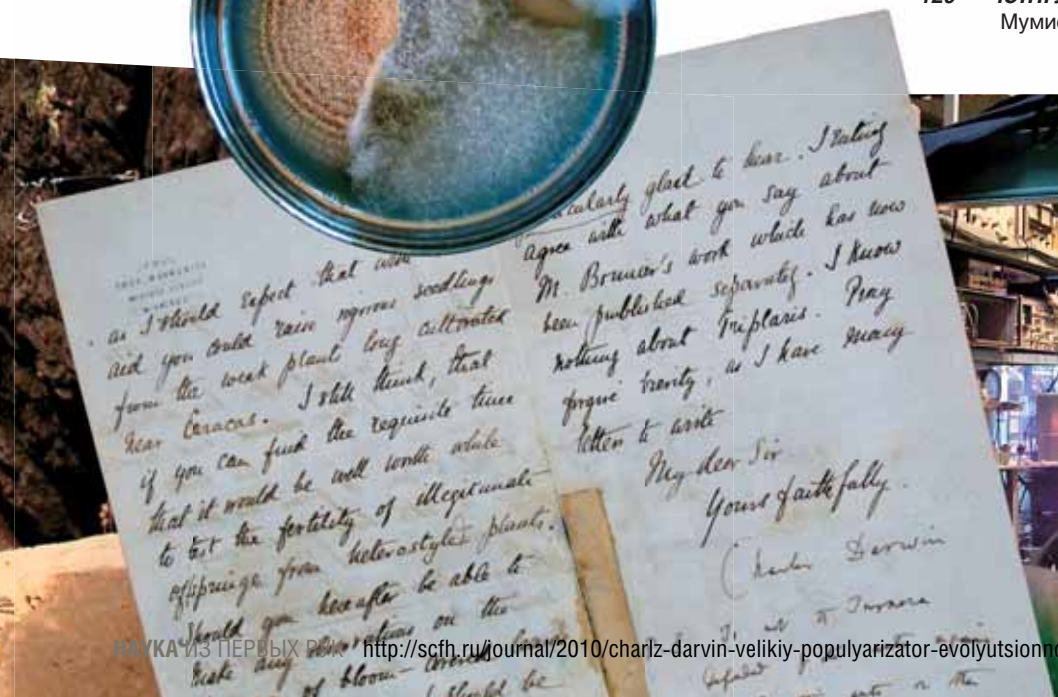 Мумис
as I should expect that
aid you could raise vigorous seedlings
from the weak plants long cultivated
near Caracas. I still think, that
if you can find the requisite time
that it would be well worth while
to test the fertility of illegitimate
offsprings from heterostyled plants.
Should you hereafter be able to
make any on the
of bloom
should be
glad to hear. I entirely
agree with what you say about
M. Bonnier's work which has now
been published separately. I know
nothing about Triplaris. Pray
forgive brevity, as I have many
letters to write
My dear Sir
Yours faithfully.
Charles Darwin
НАУКА ИЗ ПЕРВЫХ РУК http://scfh.ru/journal/2010/charlz-darvin-velikiy-populyarizator-evolyutsionno